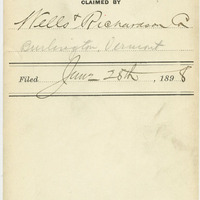 CLAIMED BY
Wells & Richardson Co
Burlington, Vermont
Filed June 25th, 1898